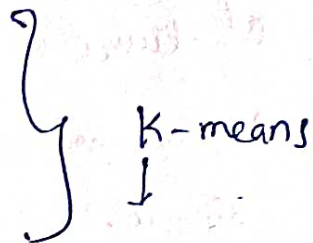 } K-means
↓